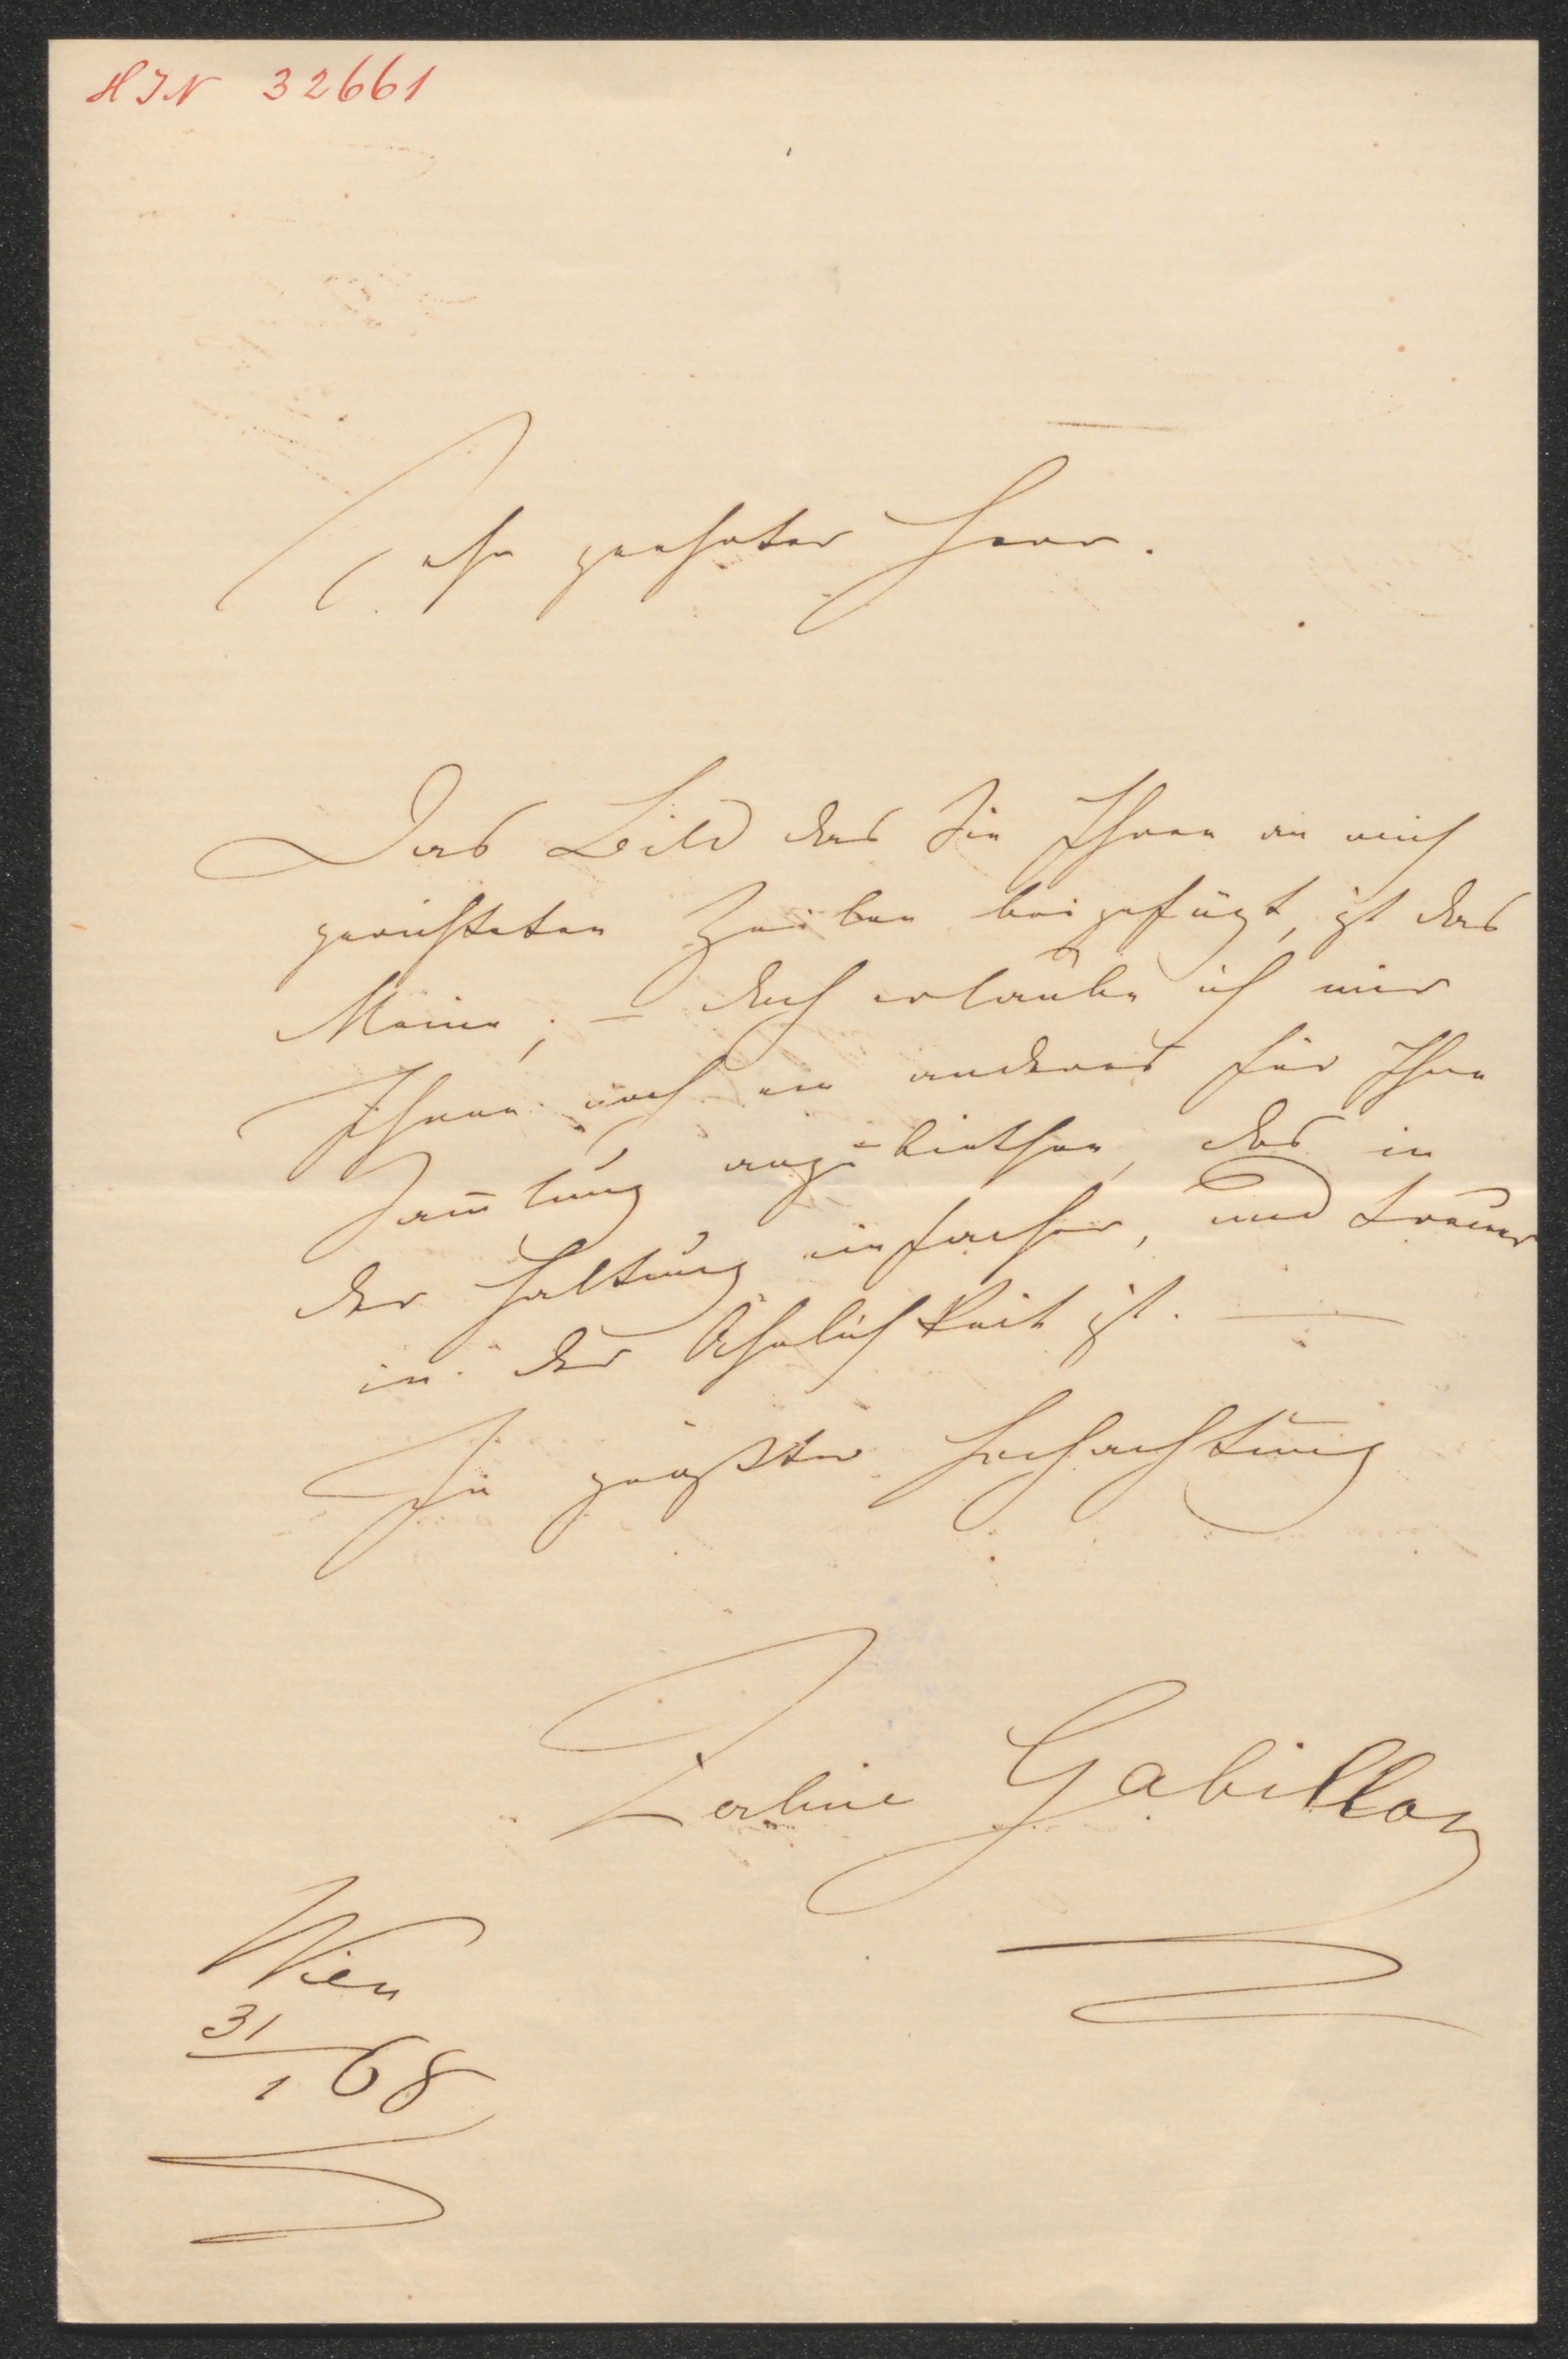 HIN 32661
Sehr geehrter Herr.
Das Bild das Sie Ihren an mich
gerichteten Zeilen beigefügt, ist das
Meine; – doch erlaube ich mir
Ihnen noch ein anderes für Ihre
Sam̄lung anzubiethen, das in
der Haltung einfacher, und treuer
in der Ähnlichkeit ist. —
In größter Hochachtung
Zerline Gabillon
Wien
31/1 68